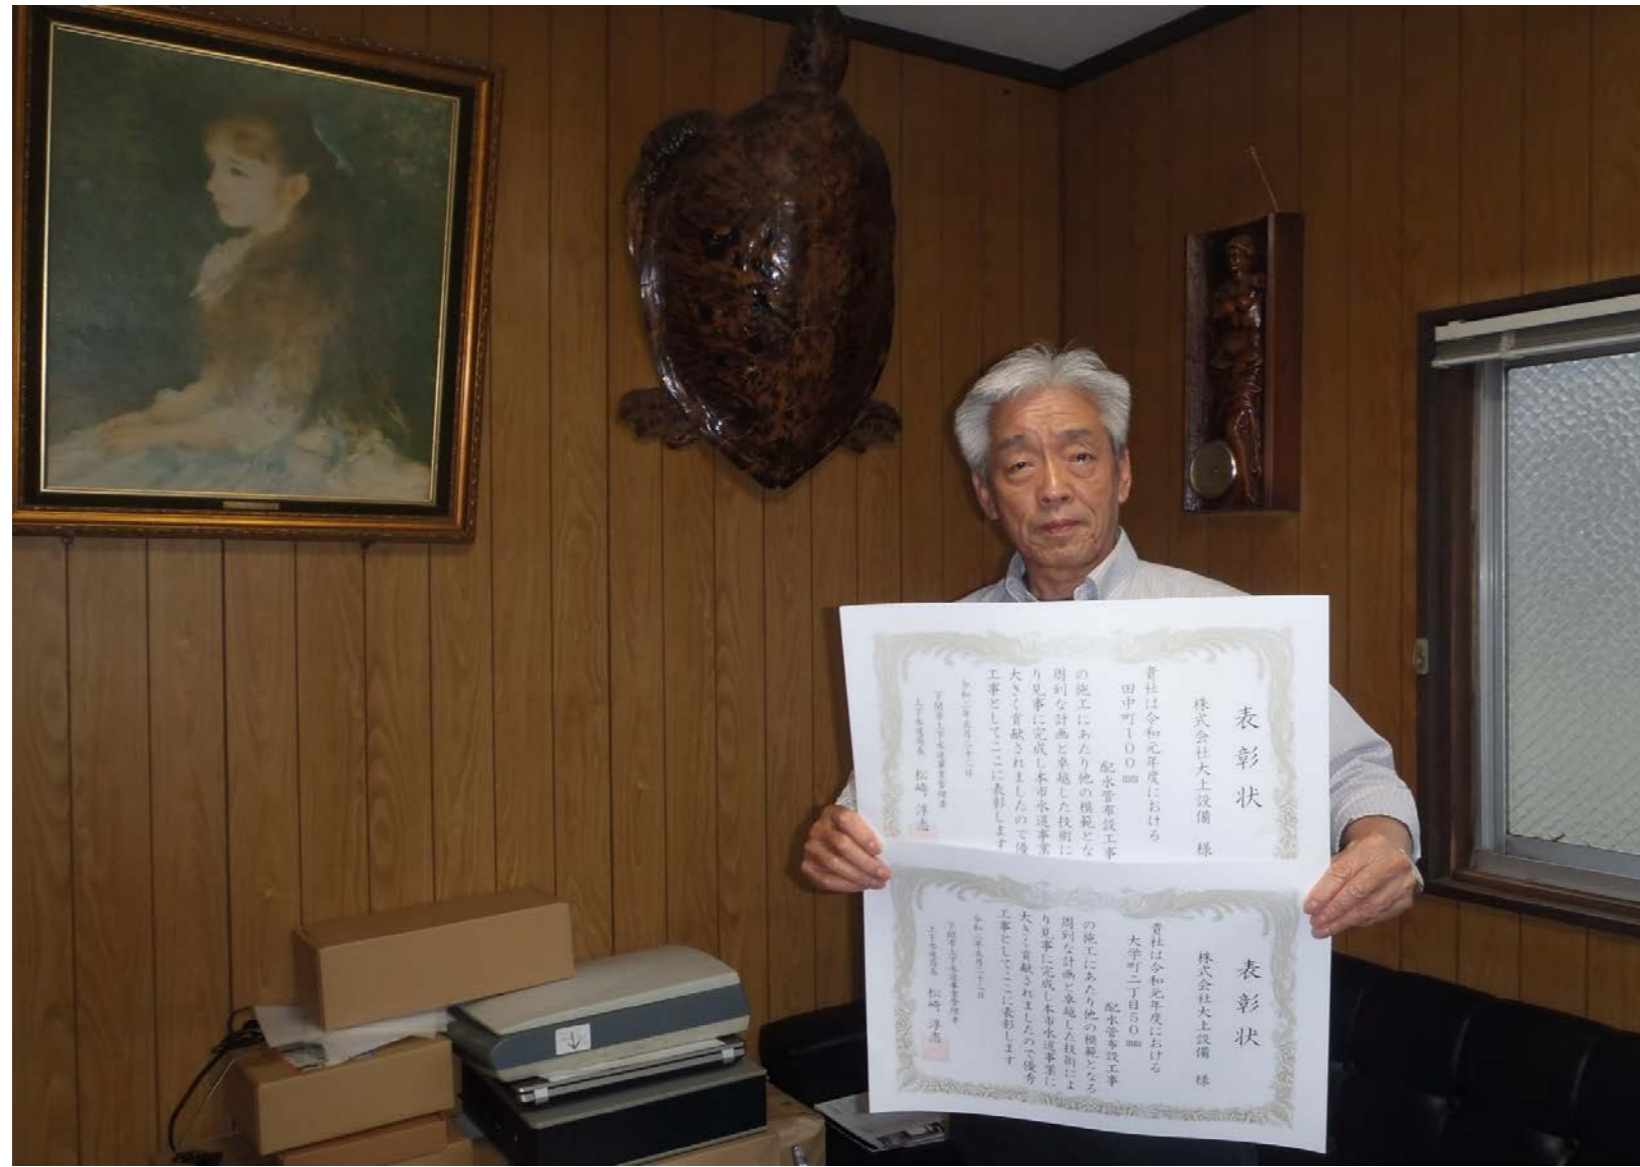 表彰状
株式会社大上設備 様
貴社は令和元年度における
田中町100㎜
配水管布設工事
の施工にあたり他の模範とな
周到な計画と卓越した技術に
り見事に完成し本市水道事業
大きく貢献されましたので優
工事としてここに表彰します
令和二年五月二十二日
下関市上下水道事業管理者
上下水道局長 松崎 淳志
表彰状
株式会社大上設備 様
貴社は令和元年度における
大学町二丁目50㎜
配水管布設工事
の施工にあたり他の模範となる
周到な計画と卓越した技術によ
り見事に完成し本市水道事業に
大きく貢献されましたので優秀
工事としてここに表彰します
令和二年五月二十二日
下関市上下水道事業管理者
上下水道局長 松崎 淳志